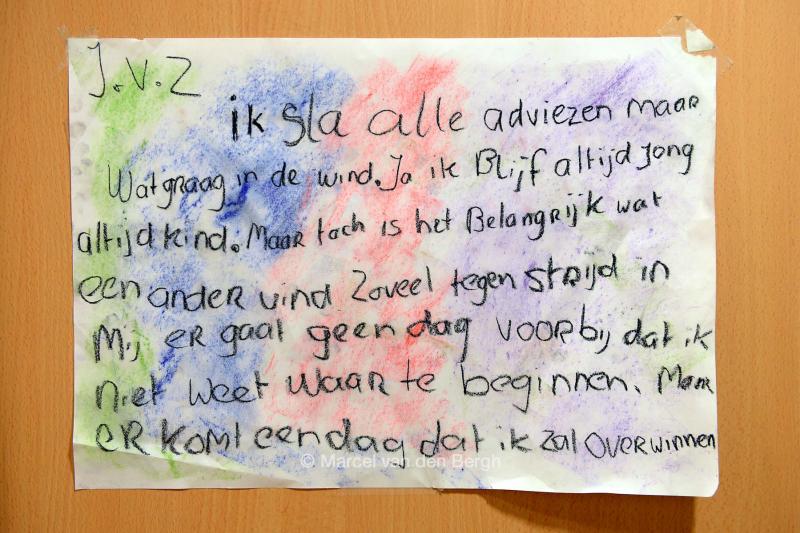 J.V.Z
ik sla alle adviezen maar
wat graag in de wind. Ja ik Blijf altijd jong
altijd kind. Maar toch is het Belangrijk wat
een ander vind Zoveel tegen strijd in
Mij er gaat geen dag voorbij dat ik
niet weet waar te beginnen. Maar
er komt een dag dat ik zal overwinnen
© Marcel van den Bergh